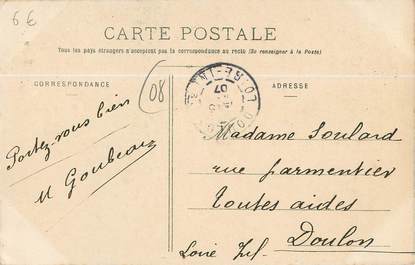 6 €
CARTE POSTALE
Tous les pays étrangers n'acceptent pas la correspondance au recto (Se renseigner à la Poste)
CORRESPONDANCE
ADRESSE
08
07
Portez-vous bien
M Goubeau
Madame Soulard
rue parmentier
toutes aides
Doulon
Loire Inf.